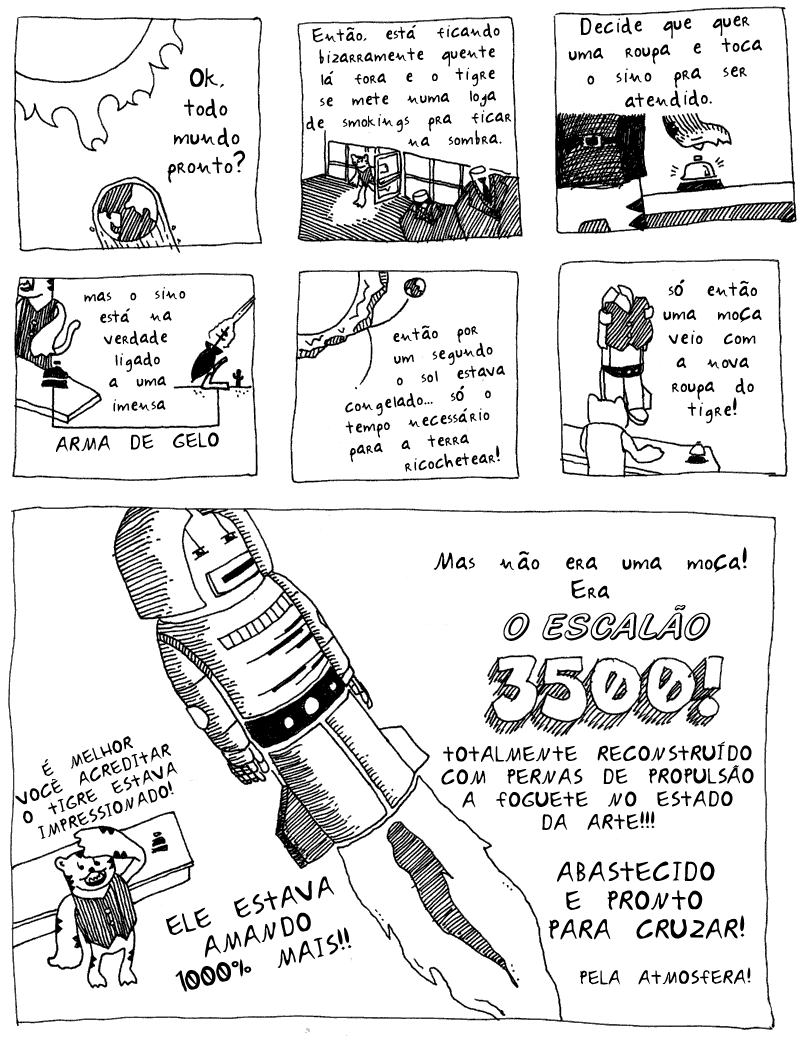 Ok,
todo
mundo
pronto?
Então, está ficando
bizarramente quente
lá fora e o tigre
se mete numa loja
de smokings pra ficar
na sombra.
Decide que quer
uma roupa e toca
o sino pra ser
atendido.
mas o sino
está na
verdade
ligado
a uma
imensa
ARMA DE GELO
então por
um segundo
o sol estava
congelado... só o
tempo necessário
para a terra
ricochetear!
só então
uma moça
veio com
a nova
roupa do
tigre!
Mas não era uma moça!
Era
O ESCALÃO
3500!
TOTALMENTE RECONSTRUÍDO
COM PERNAS DE PROPULSÃO
A FOGUETE NO ESTADO
DA ARTE!!!
É MELHOR
VOCÊ ACREDITAR
O TIGRE ESTAVA
IMPRESSIONADO!
ELE ESTAVA
AMANDO
1000% MAIS!!
ABASTECIDO
E PRONTO
PARA CRUZAR!
PELA ATMOSFERA!